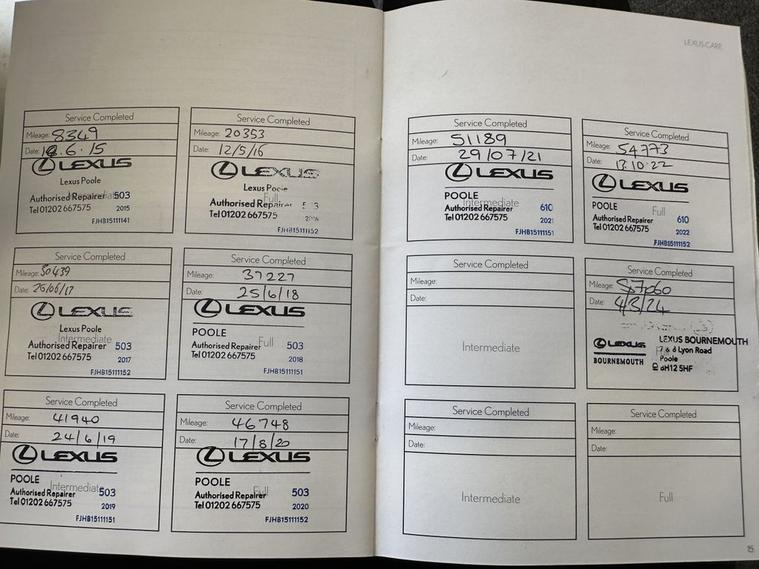 LEXUS CARE
Service Completed
Mileage: 8349
Date: 6.15
LEXUS
Lexus Poole
Authorised Repairer 503
Tel 01202 667575 2015
FJHB15111141
Service Completed
Mileage: 20353
Date: 12/5/16
LEXUS
Lexus Poole
Full
Authorised Repairer
Tel 01202 667575
FJHB15111152
Service Completed
Mileage: 30439
Date: 26/06/17
LEXUS
Lexus Poole
Intermediate
Authorised Repairer 503
Tel 01202 667575 2017
FJHB15111152
Service Completed
Mileage: 37227
Date: 25/6/18
LEXUS
POOLE
Full
Authorised Repairer 503
Tel 01202 667575 2018
FJHB15111151
Service Completed
Mileage: 41940
Date: 24/6/19
LEXUS
POOLE
Intermediate
Authorised Repairer 503
Tel 01202 667575 2019
FJHB15111151
Service Completed
Mileage: 46748
Date: 17/8/20
LEXUS
POOLE
Full
Authorised Repairer 503
Tel 01202 667575 2020
FJHB15111152
Service Completed
Mileage: 51189
Date: 29/07/21
LEXUS
POOLE
Intermediate
Authorised Repairer 610
Tel 01202 667575 2021
FJHB15111151
Service Completed
Mileage: 54773
Date: 13.10.22
LEXUS
POOLE
Full
Authorised Repairer 610
Tel 01202 667575 2022
FJHB15111152
Service Completed
Mileage:
Date:
Intermediate
Service Completed
Mileage:
Date: 4/3/24
LEXUS
BOURNEMOUTH
LEXUS BOURNEMOUTH
Lyon Road
Poole
BH12 5HF
Service Completed
Mileage:
Date:
Intermediate
Service Completed
Mileage:
Date:
Full
15